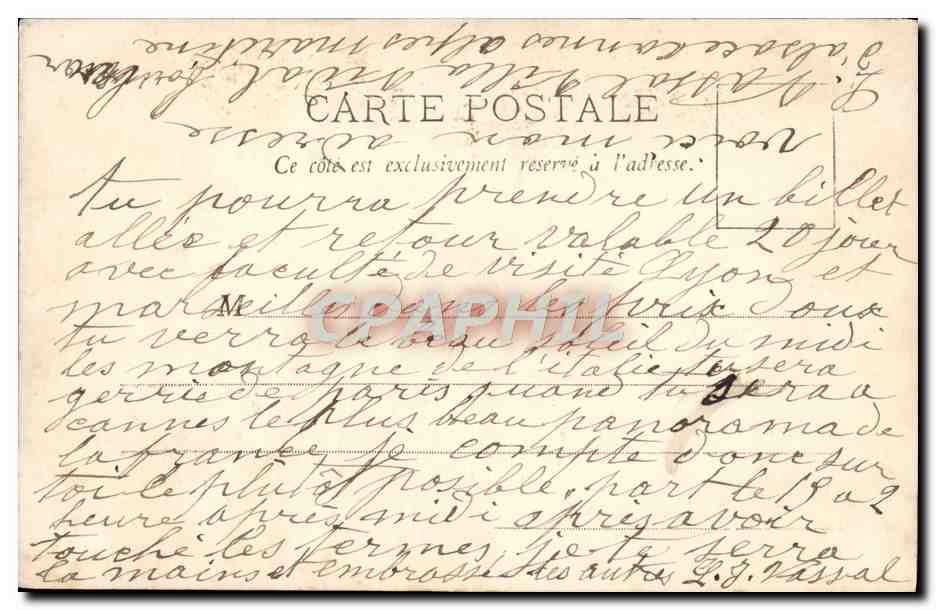 CARTE POSTALE
Ce côté est exclusivement réservé à l'adresse.
tu pourra prendre un billet
allée et retour valable 20 jour
avec faculté de visité Lyon et
marseille dans les prix doux
M
tu verra le beau soleil du midi
les montagne de l'italie tu sera
gerrie de paris quand tu sera a
cannes le plus beau panorama de
la france je compte donc sur
toi le plutôt posible, part le 15 a 2
heure après midi après avoir
touché les termes, je te serra
la mains et embrasse les autres L. J. Vassal
voici mon adresse
L. Vassal Villa Vidal,
d'alsace cannes alpes maritime
CPAPHIL